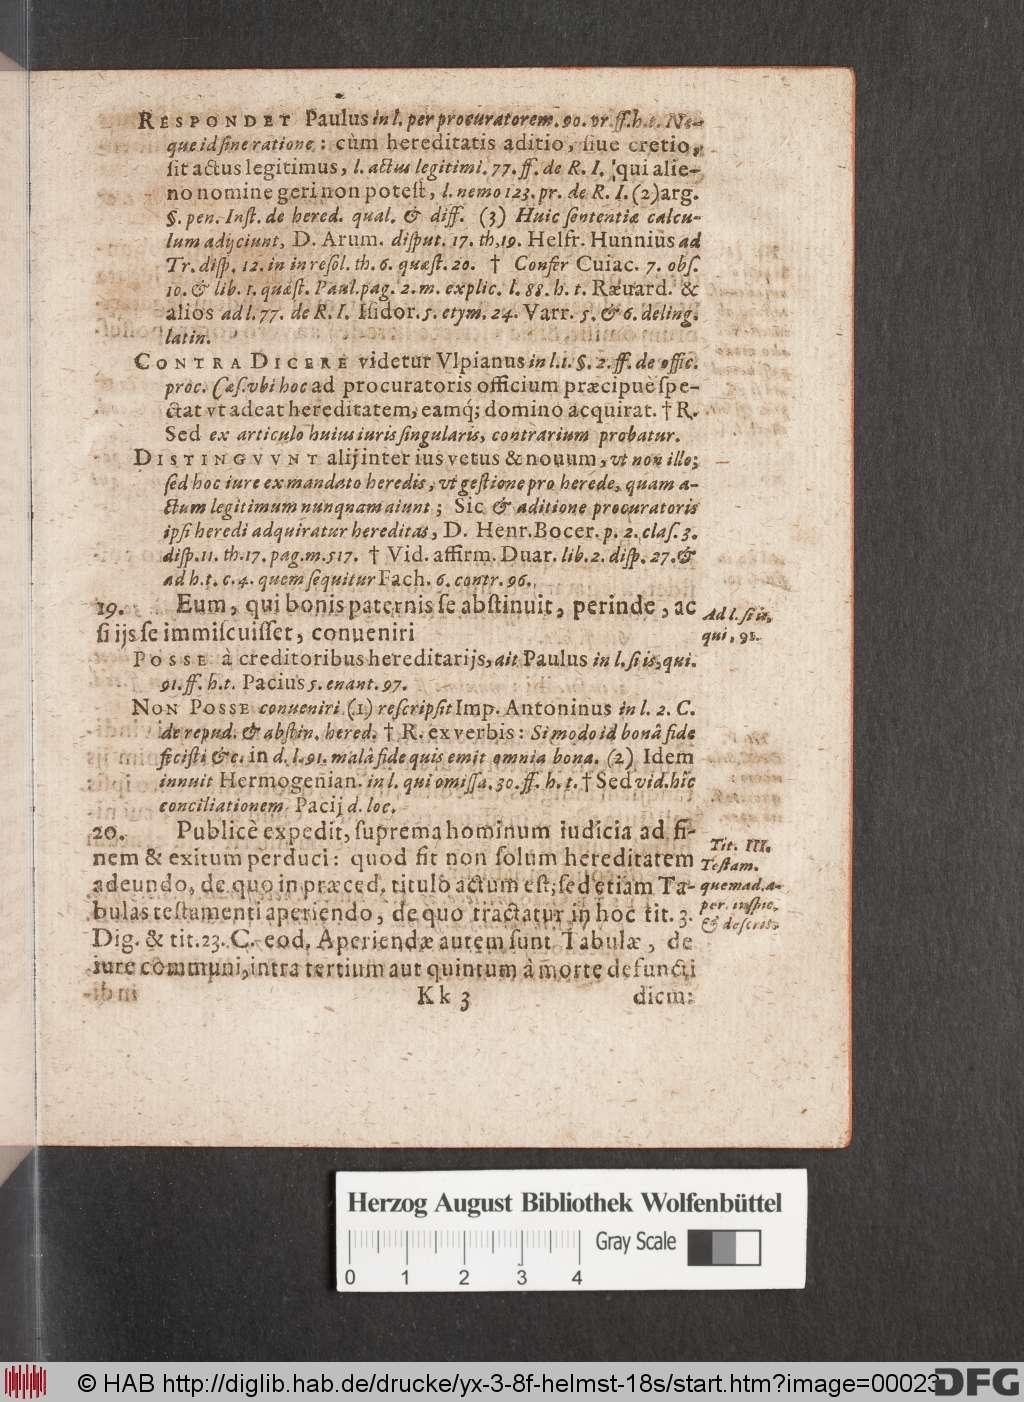 RESPONDET Paulus in l. per procuratorem. 90. pr. ff. h. t. Ne-
que id sine ratione: cùm hereditatis aditio, siue cretio,
sit actus legitimus, l. actus legitimi. 77. ff. de R. I. qui alie-
no nomine geri non potest, l. nemo 123. pr. de R. I. (2) arg.
§. pen. Inst. de hered. qual. & diff. (3) Huic sententiæ calcu-
lum adijciunt, D. Arum. disput. 17. th. 19. Helfr. Hunnius ad
Tr. disp. 12. in in resol. th. 6. quæst. 20. † Confer Cuiac. 7. obs.
10. & lib. t. quæst. Paul. pag. 2. m. explic. l. 88. h. t. Ræuard. &
alios ad l. 77. de R. I. Isidor. 5. etym. 24. Varr. 5. & 6. de ling.
latin.
CONTRA DICERE videtur Vlpianus in l. 1. §. 2. ff. de offic.
proc. Cæs. vbi hoc ad procuratoris officium præcipuè spe-
ctat vt adeat hereditatem, eamq́; domino acquirat. † R.
Sed ex articulo huius iuris singularis, contrarium probatur.
DISTINGVVNT alij inter ius vetus & nouum, vt non illo;
sed hoc iure ex mandato heredis, vt gestione pro herede, quam a-
ctum legitimum nunquam aiunt; Sic & aditione procuratoris
ipsi heredi adquiratur hereditas, D. Henr. Bocer. p. 2. clas. 3.
disp. 11. th. 17. pag. m. 517. † Vid. affirm. Duar. lib. 2. disp. 27. &
ad h. t. c. 4. quem sequitur Fach. 6. contr. 96.
19. Eum, qui bonis paternis se abstinuit, perinde, ac
si ijs se immiscuisset, conueniri
Ad l. si is,
qui, 91.
POSSE à creditoribus hereditarijs, ait Paulus in l. si is, qui.
91. ff. h. t. Pacius 5. enant. 97.
NON POSSE conueniri (1) rescripsit Imp. Antoninus in l. 2. C.
de repud. & abstin. hered. † R. ex verbis: Si modo id bonâ fide
fecisti &c. in d. l. 91. malâ fide quis emit omnia bona. (2) Idem
innuit Hermogenian. in l. qui omissa. 30. ff. h. t. † Sed vid. hîc
conciliationem Pacij d. loc.
20. Publicè expedit, suprema hominum iudicia ad fi-
nem & exitum perduci: quod fit non solum hereditatem
adeundo, de quo in præced. titulo actum est; sed etiam Ta-
bulas testamenti aperiendo, de quo tractatur in hoc tit. 3.
Dig. & tit. 23. C. eod. Aperiendæ autem sunt Tabulæ, de
iure communi, intra tertium aut quintum à morte defuncti
Tit. III.
Testam.
quemad. a-
per. inspic.
& describ.
Kk 3 diem:
Herzog August Bibliothek Wolfenbüttel
Gray Scale
0 1 2 3 4
© HAB http://diglib.hab.de/drucke/yx-3-8f-helmst-18s/start.htm?image=00023
DFG